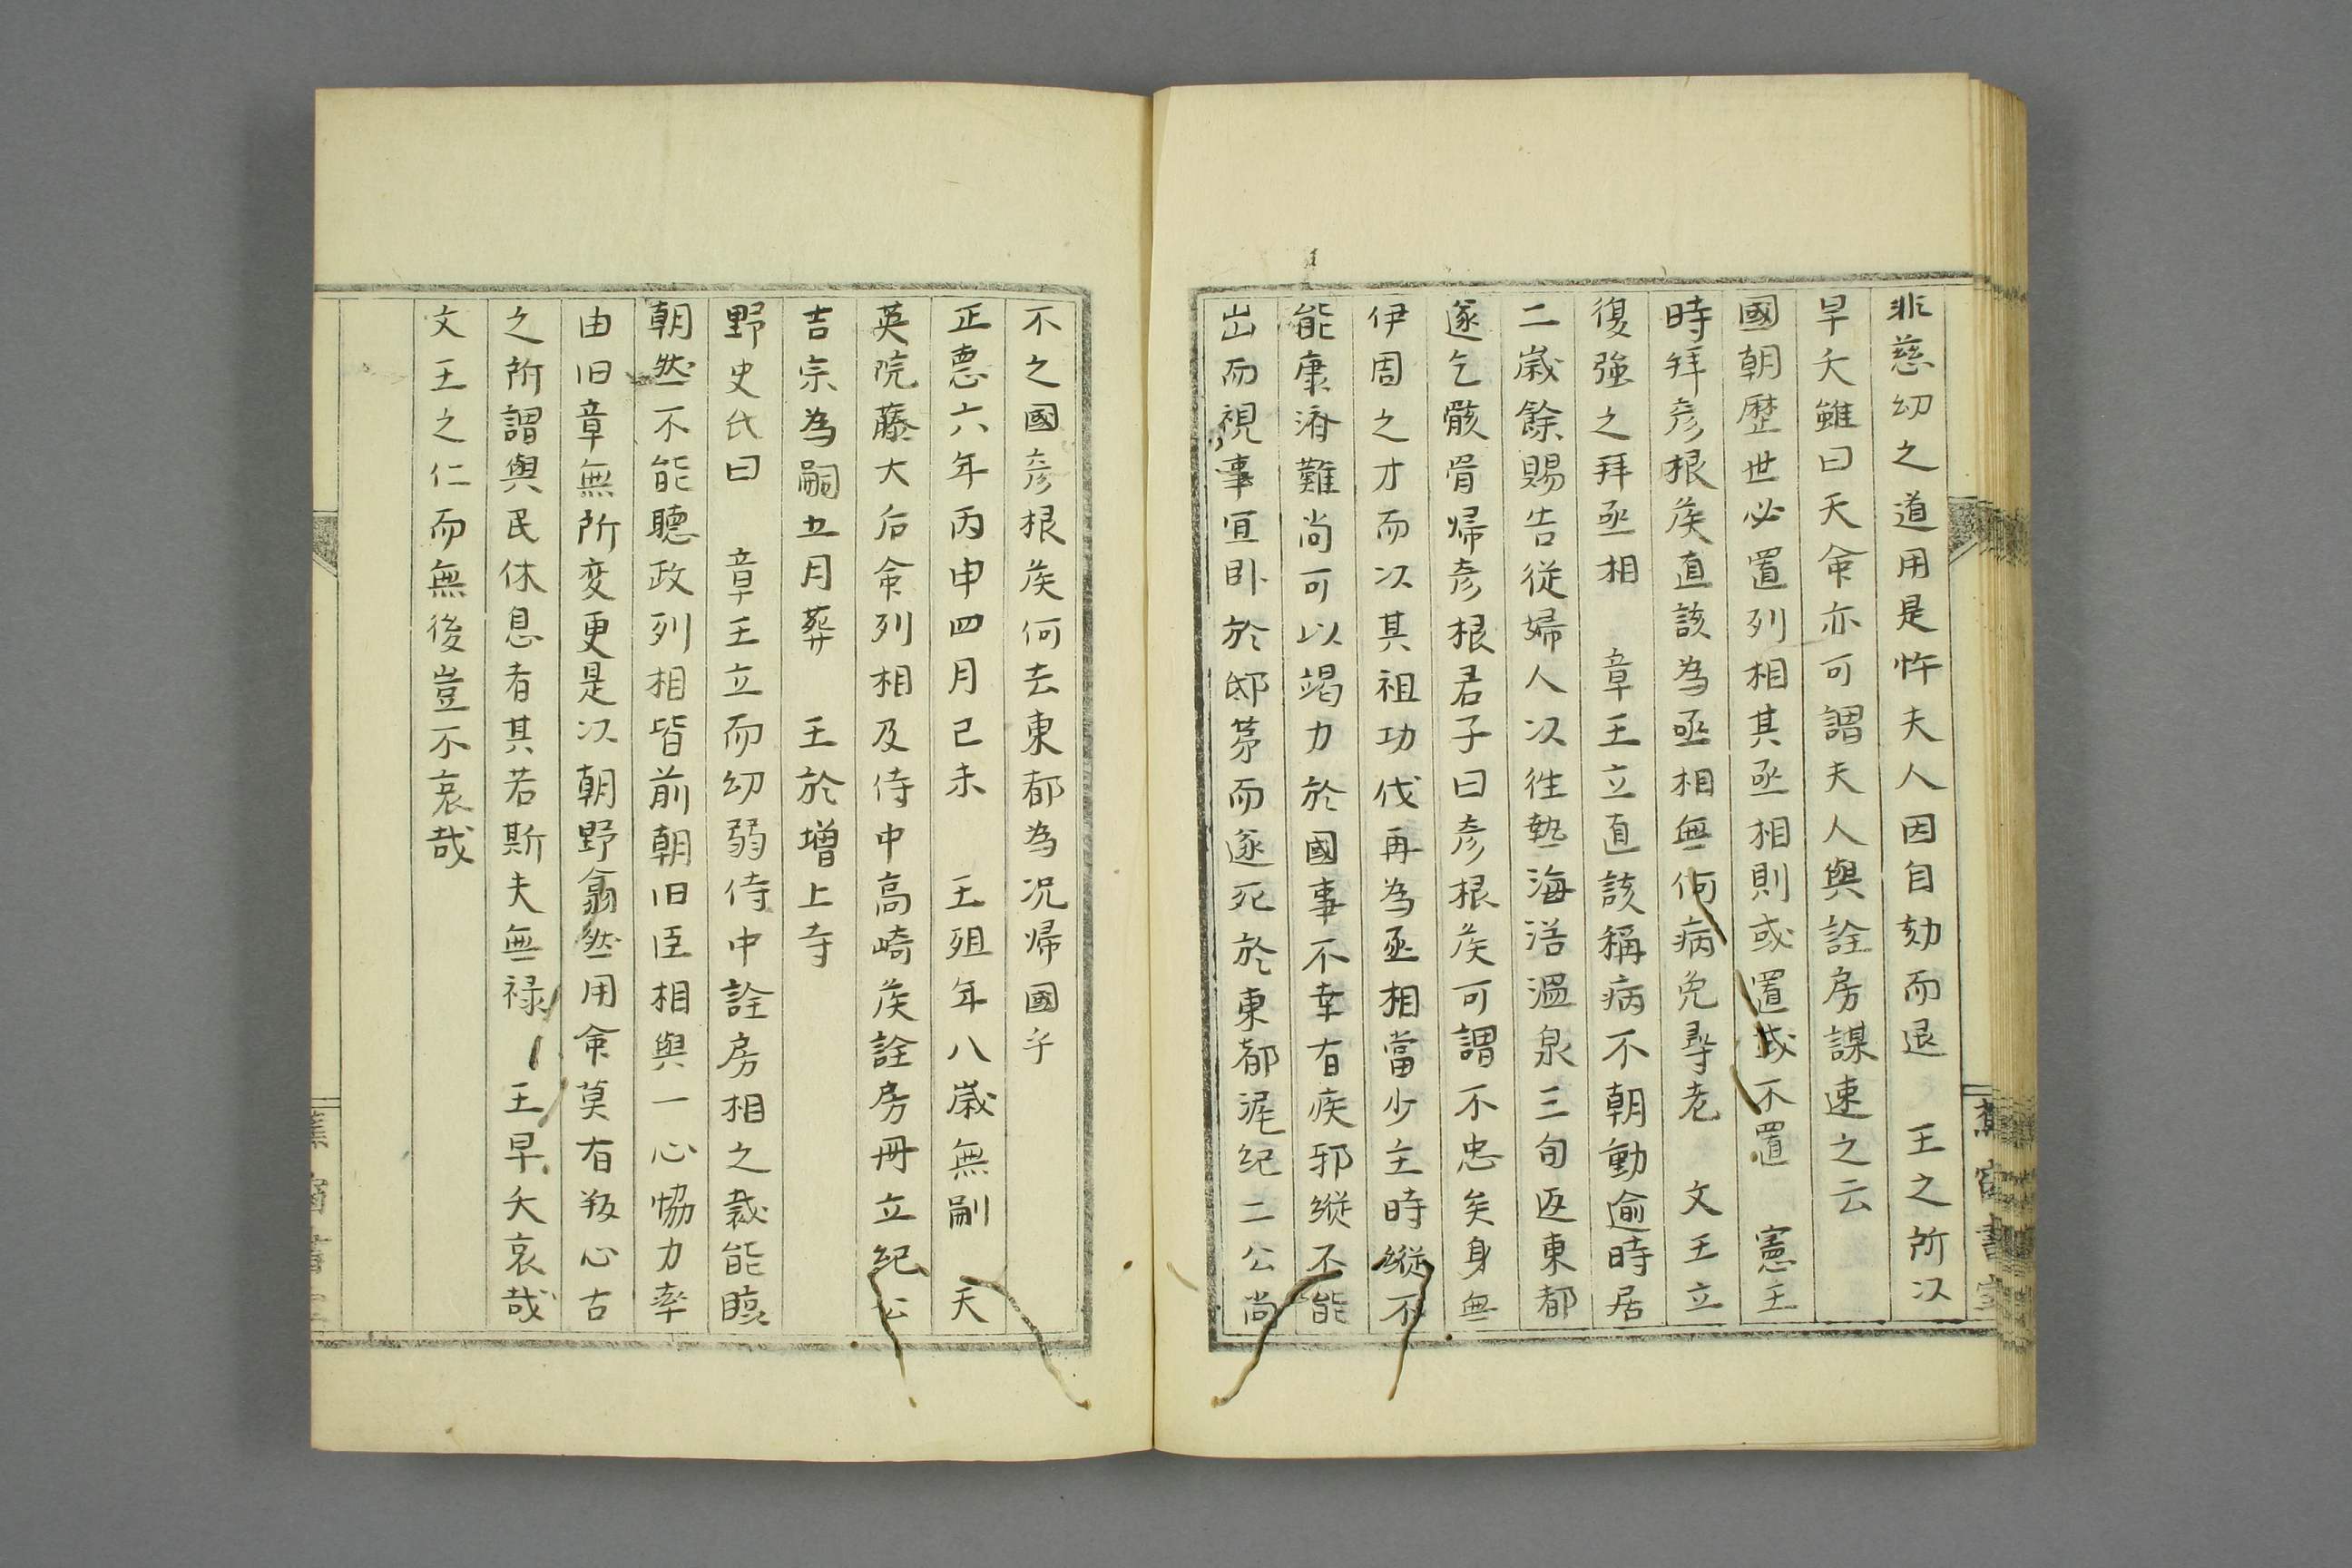 非慈幼之道用是忤夫人因自劾而退　王之所以
早夭雖曰天命亦可謂夫人與詮房謀速之云
國朝歴世必置列相其丞相則或置或不置　憲王
時拜彦根侯直該為丞相無何病免尋老　文王立
復強之拜丞相　章王立直該稱病不朝動逾時居
二歳餘賜告従婦人以往熱海浴温泉三旬返東都
遂乞骸骨帰彦根君子曰彦根侯可謂不忠矣身無
伊周之才而以其祖功伐再為丞相當少主時縦不
能康済難尚可以竭力於國事不幸有疾邪縦不能
出而視事宜卧於邸茅而遂死於東都滝紀二公尚
不之國彦根侯何去東都為况帰國乎
正悳六年丙申四月己未　王殂年八歳無嗣　天
英院藤大后命列相及侍中高崎侯詮房冊立紀公
吉宗為嗣五月葬　王於增上寺
野史氏曰　章王立而幼弱侍中詮房相之裁能臨
朝然不能聽政列相皆前朝旧臣相與一心恊力率
由旧章無所変更是以朝野翕然用命莫有叛心古
之所謂與民休息者其若斯夫無禄　王早夭哀哉
文王之仁而無後豈不哀哉